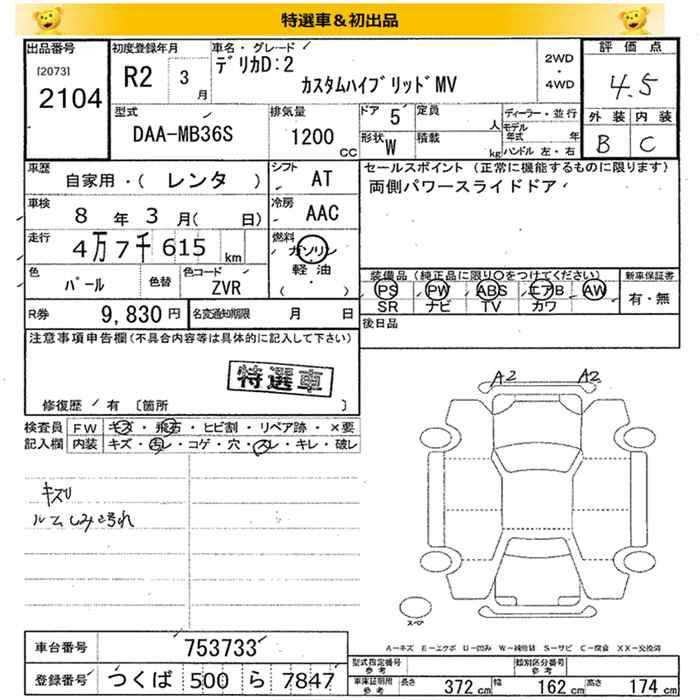 特選車＆初出品
出品番号 初度登録年月 車名・グレード 2WD・4WD 評価点
[2073]
2104 R2 3月 デリカD:2 カスタムハイブリッドMV 4.5
型式 排気量 ドア 5 定員 人 ディーラー・並行 外装 内装
DAA-MB36S 1200 CC 形状 W 積載 kg モデル年式 年 ハンドル 左・右 B C
車歴 シフト セールスポイント (正常に機能するものに限ります)
自家用・(レンタ) AT 両側パワースライドドア
車検 8年3月(日) 冷房 AAC
走行 4万7千615km 燃料 ガソリン 軽油 (・)
色 色替 色コード 装備品 (純正品に限り○をつけてください) 新車保証書
パール ZVR PS PW ABS エアB AW 有・無
SR ナビ TV カワ
R券 9,830円 名変通知期限 月 日 後日品
注意事項申告欄(不具合内容等は具体的に記入して下さい)
特選車
修復歴 / 有 〔箇所 〕
検査員 FW キズ・飛石・ヒビ割・リペア跡・×要
記入欄 内装 キズ・汚レ・コゲ・穴・スレ・キレ・破レ
A2 A2
キズU
ルームしみ汚れ
スペア
A=キズ E=エクボ U=凹み W=補修跡 S=サビ C=腐食 XX=交換済
車台番号 753733
登録番号 つくば 500 ら 7847
型式指定番号 参考 類別区分番号 参考
車庫証明用 参考 長さ 372cm 幅 162cm 高さ 174cm